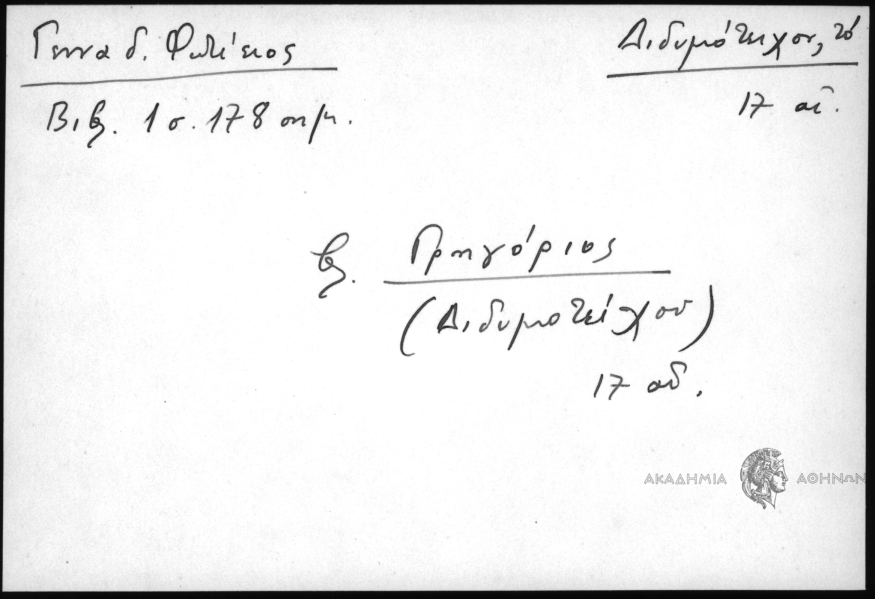 Γενναδ. Φωτίειος
Διδυμότειχον, τό
Βιβ. 1 σ. 178 σημ.
17 αἰ.
βλ. Γρηγόριος
(Διδυμοτείχου)
17 αἰ.
ΑΚΑΔΗΜΙΑ ΑΘΗΝΩΝ